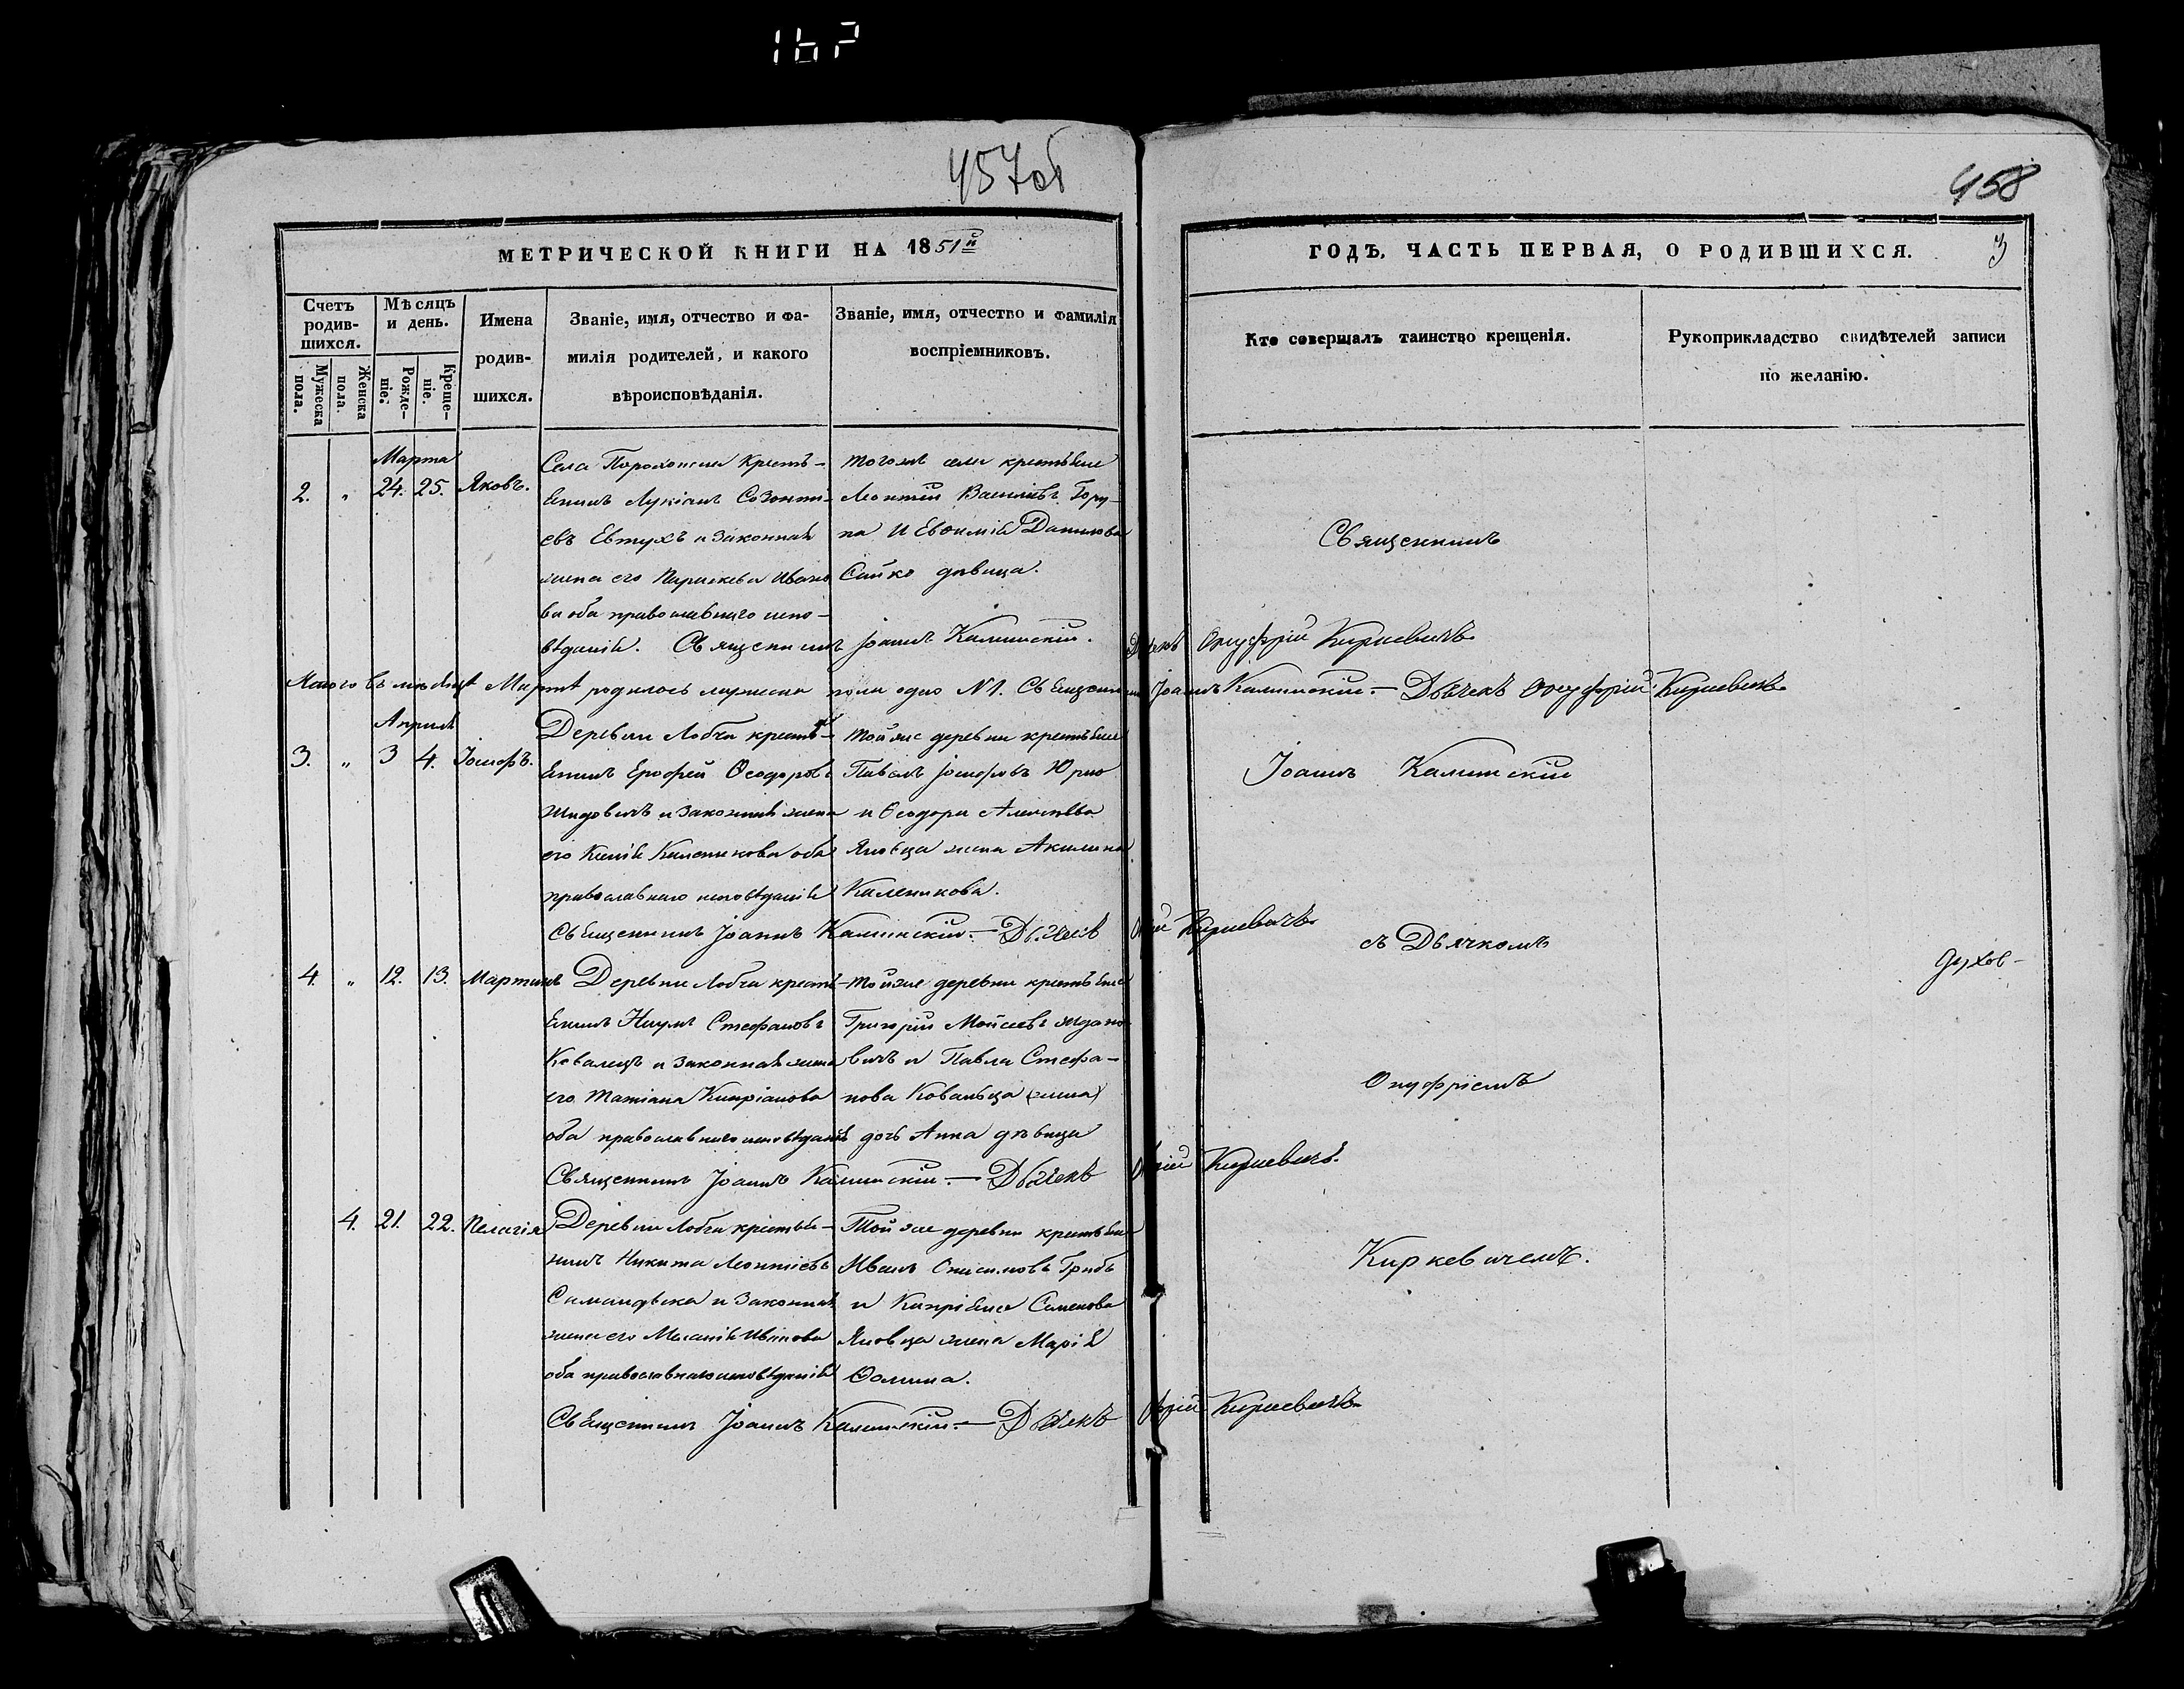 167
457об
458
МЕТРИЧЕСКОЙ КНИГИ НА 1851й
ГОДЪ. ЧАСТЬ ПЕРВАЯ, О РОДИВШИХСЯ.
3
Счетъ родив-шихся.
Мужеска пола.
Женска пола.
Мѣсяцъ и день.
Рожде-ніе.
Креще-ніе.
Имена
родив-
шихся.
Званіе, имя, отчество и фа-
милія родителей, и какого
вѣроисповѣданія.
Званіе, имя, отчество и фамилія
воспріемниковъ.
Кто совершалъ таинство крещенія.
Рукоприкладство свидѣтелей записи
по желанію.
Марта
2. " 24. 25. Яковъ.
Села Порохонска Кресть-
янинъ Лукіанъ Созонті-
евъ Евтухъ и законная
жена его Параскева Ивано
ва оба православнаго испо-
вѣданія. Священникъ Іоаннъ Калинскій. Дьячекъ Онуфрій Киркевичъ
тогоже села крестьяне
Леонтій Васильевъ
на и Евфимія Данилова
Сайко дѣвица.
Итого въ мѣсяцѣ Мартѣ родилось мужеска пола одно №1. Священникъ Іоаннъ Калинскій – Дьячекъ Онуфрій Киркевичъ
Апрѣля
3. " 3 4. Іосифъ.
Деревни Лобча кресть-
янинъ Ерофей Ѳеодоровъ
Жидовичъ и законная жена
его Калѣникова оба
православнаго исповѣданія
Священникъ Іоаннъ Калинскій. – Дьячекъ
Киркевичъ
тойже деревни крестьяне
Павелъ Іосифовъ Юрко
и Ѳеодора Алексѣева
Яловца жена Акилина
Каленикова.
4. " 12. 13. Мартинъ
Деревни Лобча кресть-
янинъ Наумъ Стефановъ
Ковалецъ и законная жена
его Татіана Кипріанова
оба православнаго исповѣданія
Священникъ Іоаннъ Калинскій. – Дьячекъ
Киркевичъ.
тойже деревни крестьяне
Григорій Мойсеевъ Жидко
вичъ и Павла Стефа-
нова Ковальца (жена)
дочь Анна дѣвица
4. 21. 22. Пелагія
Деревни Лобча крестья-
нинъ Никита Леонтіевъ
и законная
жена его Меланія
оба православнаго исповѣданія
Священникъ Іоаннъ Калинскій. – Дьячекъ
Киркевичъ
Той же деревни крестьяне
Иванъ Онисимовъ Грибъ
и Кипріяна Семенова
Яловца жена Марія
Ѳомина.
Священникъ
Іоаннъ Калинскій
съ Дьячкомъ
Онуфріемъ
Киркевичемъ.
духов-